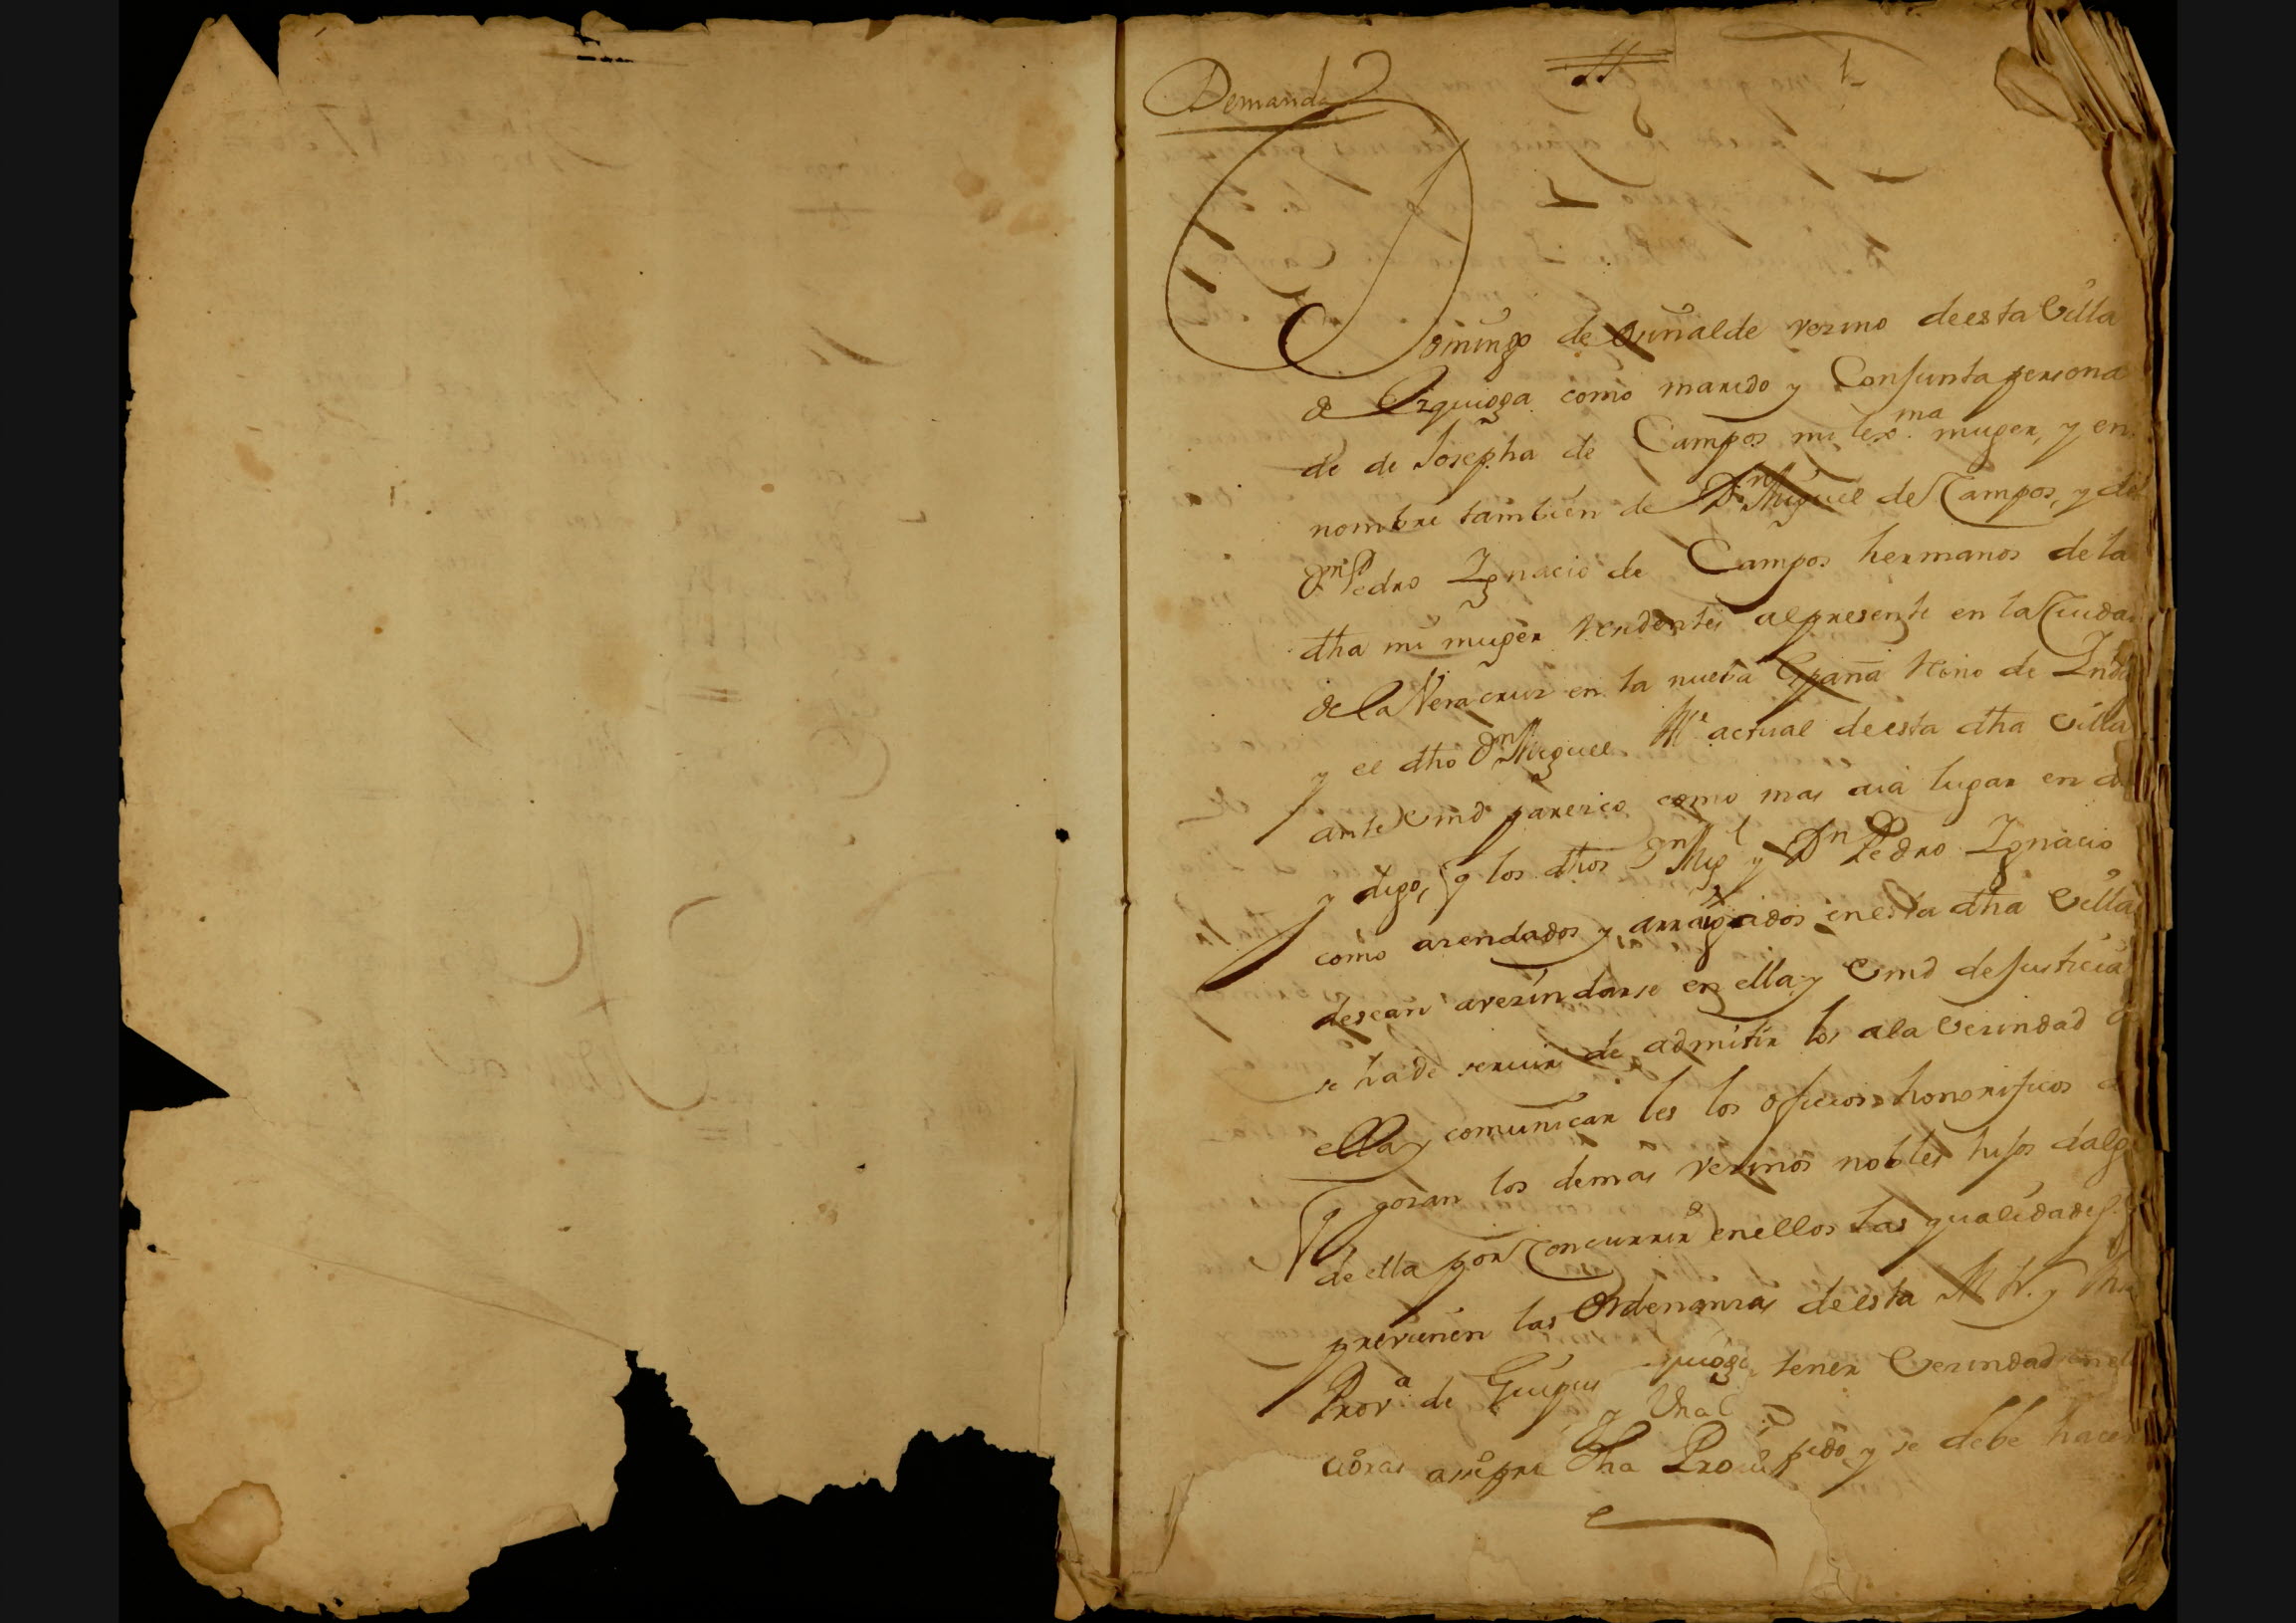 Demanda
1
Domingo de vezino de esta Villa
de Ezquioga como marido y Conjunta persona
de de Josepha de Campos mi lexma muger, y en
nombre tambien de Dn Miguel de Campos, y de
Dn Pedro Ignacio de Campos hermanos de la
dha mi muger residentes al presente en la Ciudad
de la Veracruz en la nueba España Reino de Indi
y el dho Dn Miguel Alle actual de esta dha Villa
ante Vmd parezco como mas aia lugar en d
y digo, q los dhos Dn Migl y Dn Pedro Ignacio
como azendados y arraigados en esta dha Villa
desean avezindarse en ella y Vmd de Justicia
se ha de servir de admitir los a la Vezindad d
ella y comunicar les los ofizios honorificos
q gozan los demas vezinos nobles hijos dalg
de ella por Concurrir en ellos las qualidades q
previenen las Ordenanzas de esta M N. y
Prova de Guipu quioga tener Vezindad en el
y Vnal
dha pedo, y se debe hacer